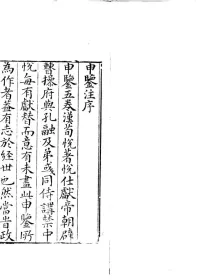 申鑒注序
申鑒五卷漢荀悅著悅仕獻帝朝辟
曹操府與孔融及弟彧同侍講禁中
悅每有獻替而意有未盡此申鑒所
為作者蓋有志於經世也然當時政